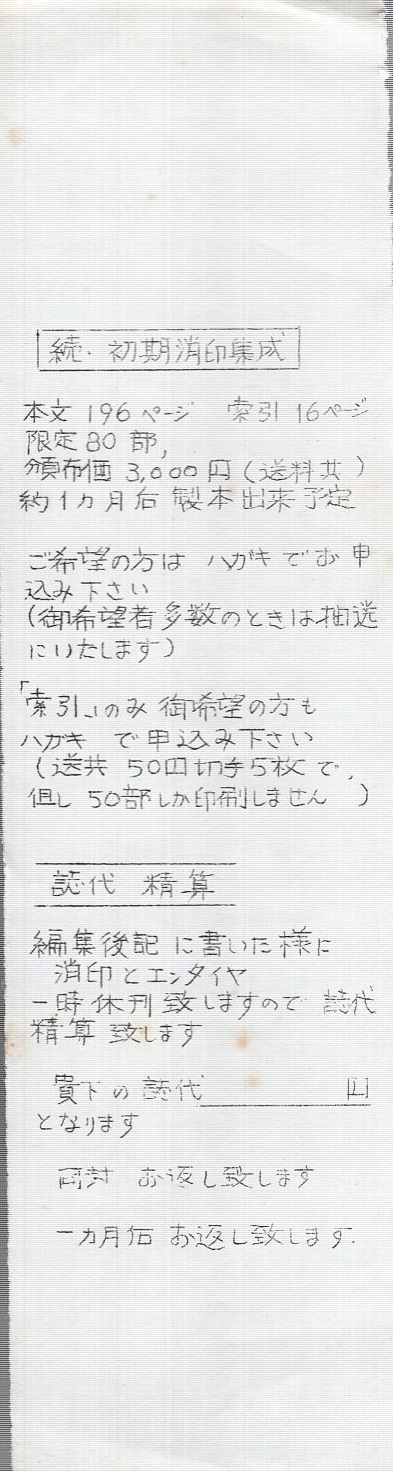 続・初期消印集成
本文 196ページ　索引 16ページ
限定 80 部,
頒布価 3,000 円 (送料共)
約1カ月后 製本出来予定
ご希望の方は ハガキ でお申
込み下さい
(御希望者多数のときは抽選
にいたします)
「索引」のみ 御希望の方も
ハガキ で申込み下さい
(送共 50円切手5枚で,
但し 50部しか印刷しません )
誌代 精算
編集後記 に書いた様に
消印とエンタイヤ
一時休刊致しますので 誌代
精算 致します
貴下の誌代　　　　　円
となります
同封 お返し致します
一カ月后 お返し致します.